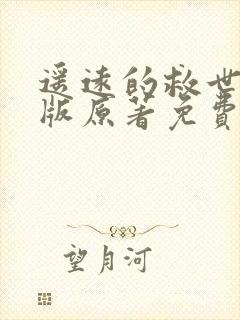 遥远的救世
版原著免費
望月河